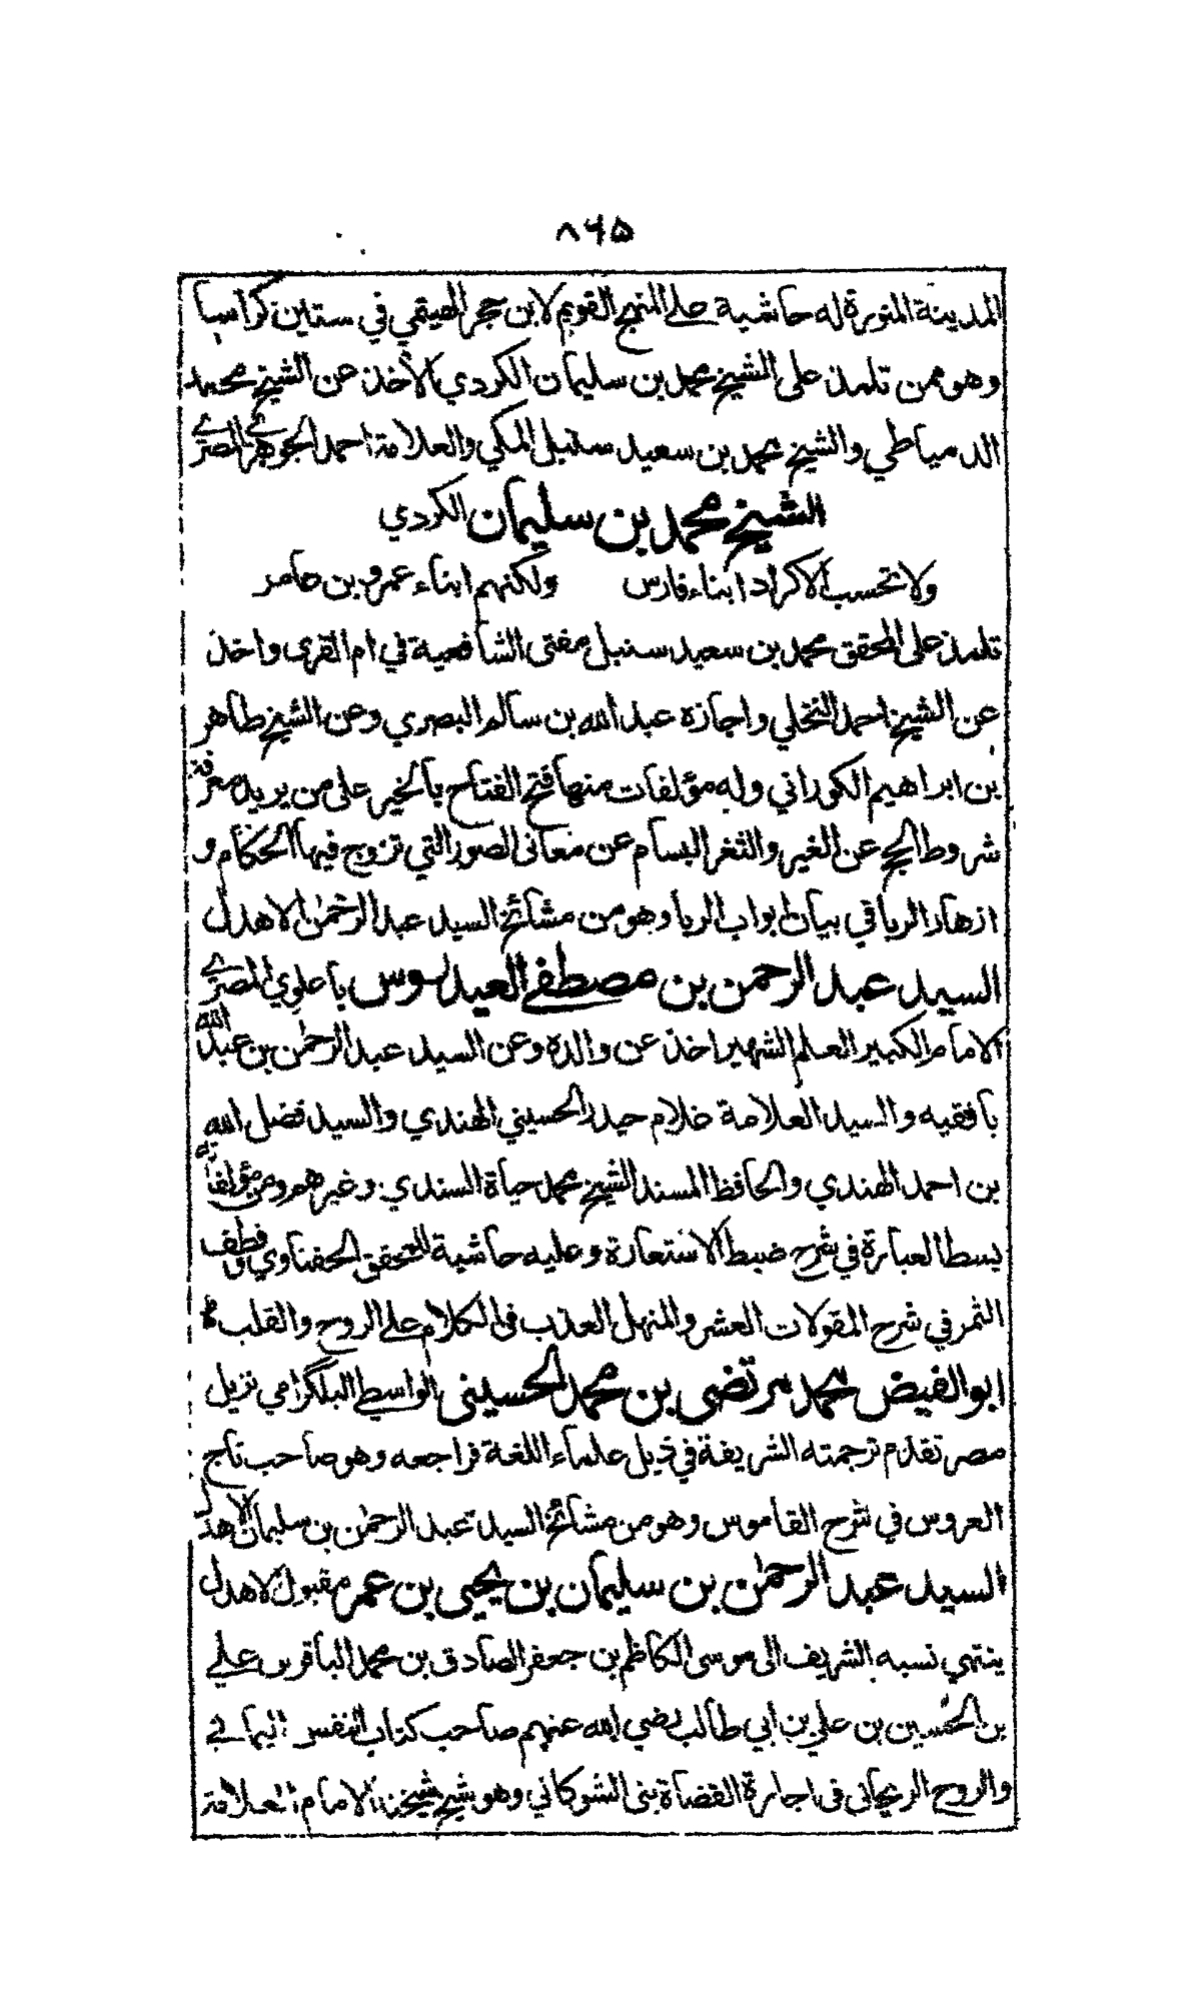 ۸۶۵
المدينة المنورة له حاشية على المنهج القويم لابن حجر الهيتمي في ستين كراسا
وهو ممن تلمذ على الشيخ محمد بن سليمان الكردي الأخذ عن الشيخ محمد
الدمياطي والشيخ محمد بن سعيد سنبل المكي والعلامة احمد الجوهري المصري
الشيخ محمد بن سليمان الكردي
ولا تحسب الاكراد ابناء فارس ولكنهم ابناء عمرو بن عامر
تلمذ على المحقق محمد بن سعيد سنبل مفتى الشافعية في ام القرى واخذ
عن الشيخ احمد النخلي واجازه عبد الله بن سالم البصري وعن الشيخ طاهر
بن ابراهيم الكوراني وله مؤلفات منها فتح الفتاح بالخير على من يريد معرفة
شروط الحج عن الغير والثغر البسام عن معانى الصور التي تزوج فيها الحكام و
ازهار الربا في بيان ابواب الربا وهو من مشائخ السيد عبد الرحمٰن الاهدل
السيد عبد الرحمن بن مصطفے العيدروس باعلوي المصري
الامام الكبير العلم الشهير اخذ عن والده وعن السيد عبد الرحمٰن بن عبد الله
بافقيه والسيد العلامة غلام حيدر الحسيني الهندي والسيد فضل الله
بن احمد الهندي والحافظ المسند الشيخ محمد حياة السندي وغيرهم ومن مؤلفاته
بسط العبارة في شرح ضبط الاستعارة وعليه حاشية المحقق الحفناوي وقطف
الثمر في شرح المقولات العشر والمنهل العذب فى الكلام على الروح والقلب
ابو الفيض محمد مرتضى بن محمد الحسينى الواسطي البلگرامي نزيل
مصر تقدم ترجمته الشريفة في ذيل علماء اللغة فراجعه وهو صاحب تاج
العروس في شرح القاموس وهو من مشائخ السيد عبد الرحمٰن بن سليمان الاهدل
السيد عبد الرحمٰن بن سليمان بن يحيى بن عمر مقبول الاهدل
ينتهي نسبه الشريف الى موسى الكاظم بن جعفر الصادق بن محمد الباقر بن علے
بن الحسين بن علي بن ابي طالب رضي الله عنهم صاحب كتاب النفس اليمانے
والروح الريحانى فى اجازة القضاة بنى الشوكاني وهو شيخ شيخنا الامام العلامة